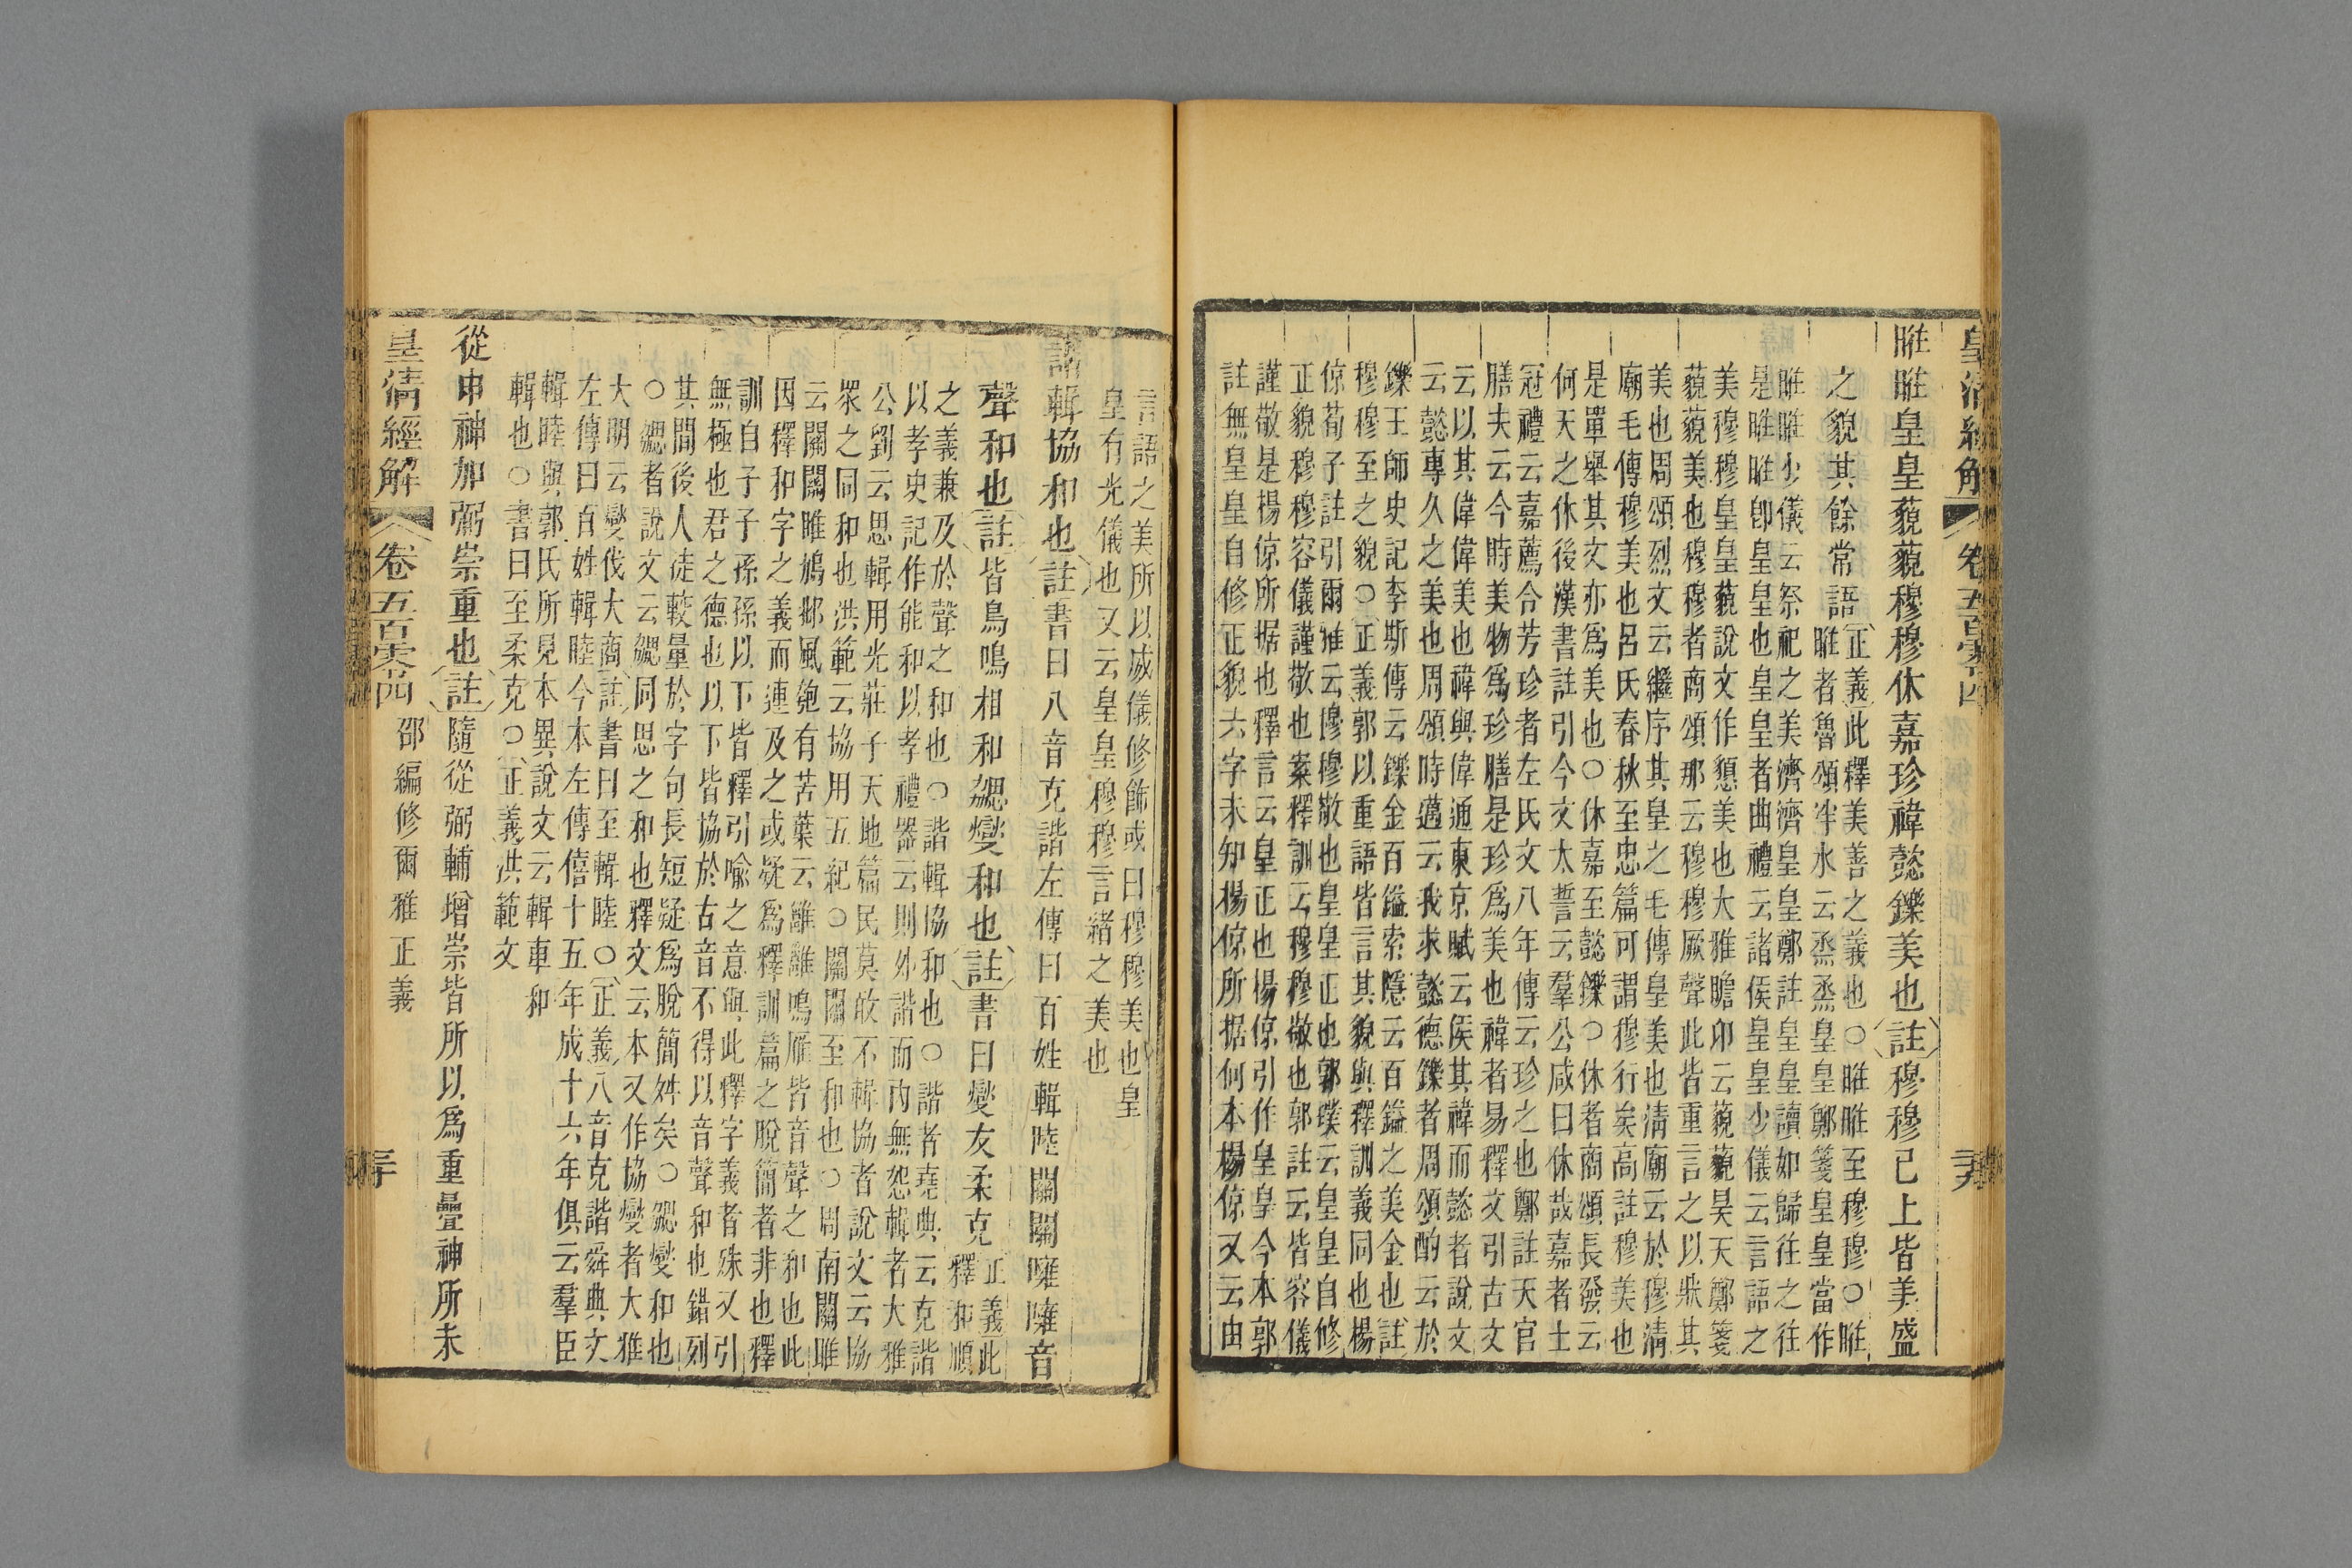 皇清經解 卷五百零四 二十九
暀暀皇皇藐藐穆穆休嘉珍禕懿鑠美也註穆穆已上皆美盛
之貌其餘常語正義此釋美善之義也○暀暀至穆穆○暀
暀者魯頌泮水云烝烝皇皇鄭箋皇皇當作
暀暀少儀云祭祀之美濟濟皇皇鄭註皇皇讀如歸往之往
是暀暀卽皇皇也皇皇者曲禮云諸侯皇皇少儀云言語之
美穆穆皇皇藐說文作懇美也大雅瞻卬云藐藐昊天鄭箋
藐藐美也穆穆者商頌那云穆穆厥聲此皆重言之以鼎其
美也周頌烈文云繼序其皇之毛傳皇美也淸廟云於穆淸
廟毛傳穆美也呂氏春秋至忠篇可謂穆行矣高註穆美也
是單舉其文亦爲美也○休嘉至懿鑠○休者商頌長發云
何天之休後漢書註引今文太誓云羣公咸曰休哉嘉者士
冠禮云嘉薦合芳珍者左氏文八年傳云珍之也鄭註天官
膳夫云今時美物爲珍膳是珍爲美也禕者易釋文引古文
云以其偉偉美也禕與偉通東京賦云侯其禕而懿者說文
云懿專久之美也周頌時邁云我求懿德鑠者周頌酌云於
鑠王師史記李斯傳云鑠金百鎰索隱云百鎰之美金也註
穆穆至之貌○正義郭以重語皆言其貌與釋訓義同也楊
倞荀子註引爾雅云穆穆敬也皇皇正也郭璞云皇皇自修
正貌穆穆容儀謹敬也案釋訓云穆穆敬也郭註云皆容儀
謹敬是楊倞所据也釋言云皇正也楊倞引作皇皇今本郭
註無皇皇自修正貌六字未知楊倞所据何本楊倞又云由
言語之美所以威儀修飾或曰穆穆美也皇
皇有光儀也又云皇皇穆穆言緒之美也
諧輯協和也註書曰八音克諧左傳曰百姓輯睦關關噰噰音
聲和也註皆鳥鳴相和勰燮和也註書曰燮友柔克正義此
釋和順
之義兼及於聲之和也○諧輯協和也○諧者堯典云克諧
以孝史記作能和以孝禮器云則外諧而內無怨輯者大雅
公劉云思輯用光莊子天地篇民莫敢不輯協者說文云協
眾之同和也洪範云協用五紀○關關至和也○周南關雎
云關關雎鳩邶風匏有苦葉云雝雝鳴雁皆音聲之和也此
因釋和字之義而連及之或疑爲釋訓篇之脫簡者非也釋
訓自子子孫孫以下皆釋引喻之意與此釋字義者殊又引
無極也君之德也以下皆協於古音不得以音聲和也錯列
其閒後人徒較量於字句長短疑爲脫簡舛矣○勰燮和也
○勰者說文云勰同思之和也釋文云本又作協燮者大雅
大明云燮伐大商註書曰至輯睦○正義八音克諧舜典文
左傳曰百姓輯睦今本左傳僖十五年成十六年俱云羣臣
輯睦與郭氏所見本異說文云輯車和
輯也○書曰至柔克○正義洪範文
從申神加弼崇重也註隨從弼輔增崇皆所以爲重疊神所未
皇清經解 卷五百零四 邵編修爾雅正義 三十